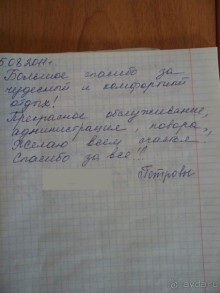 5.08.2011г
Большое спасибо за
чудесный и комфортный
отдых!
Прекрасное обслуживание,
администрация, повара,
Желаю всем счастья
Спасибо за всё!!
Петровы